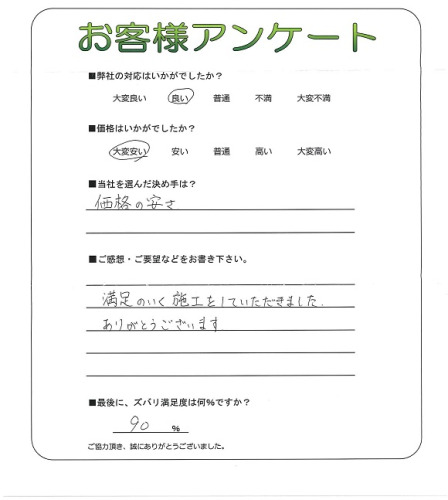 お客様アンケート
■弊社の対応はいかがでしたか?
大変良い 良い 普通 不満 大変不満
■価格はいかがでしたか?
大変安い 安い 普通 高い 大変高い
■当社を選んだ決め手は?
価格の安さ
■ご感想・ご要望などをお書き下さい。
満足のいく施工をしていただきました.
ありがとうございます
■最後に、ズバリ満足度は何%ですか?
90 %
ご協力頂き、誠にありがとうございました。